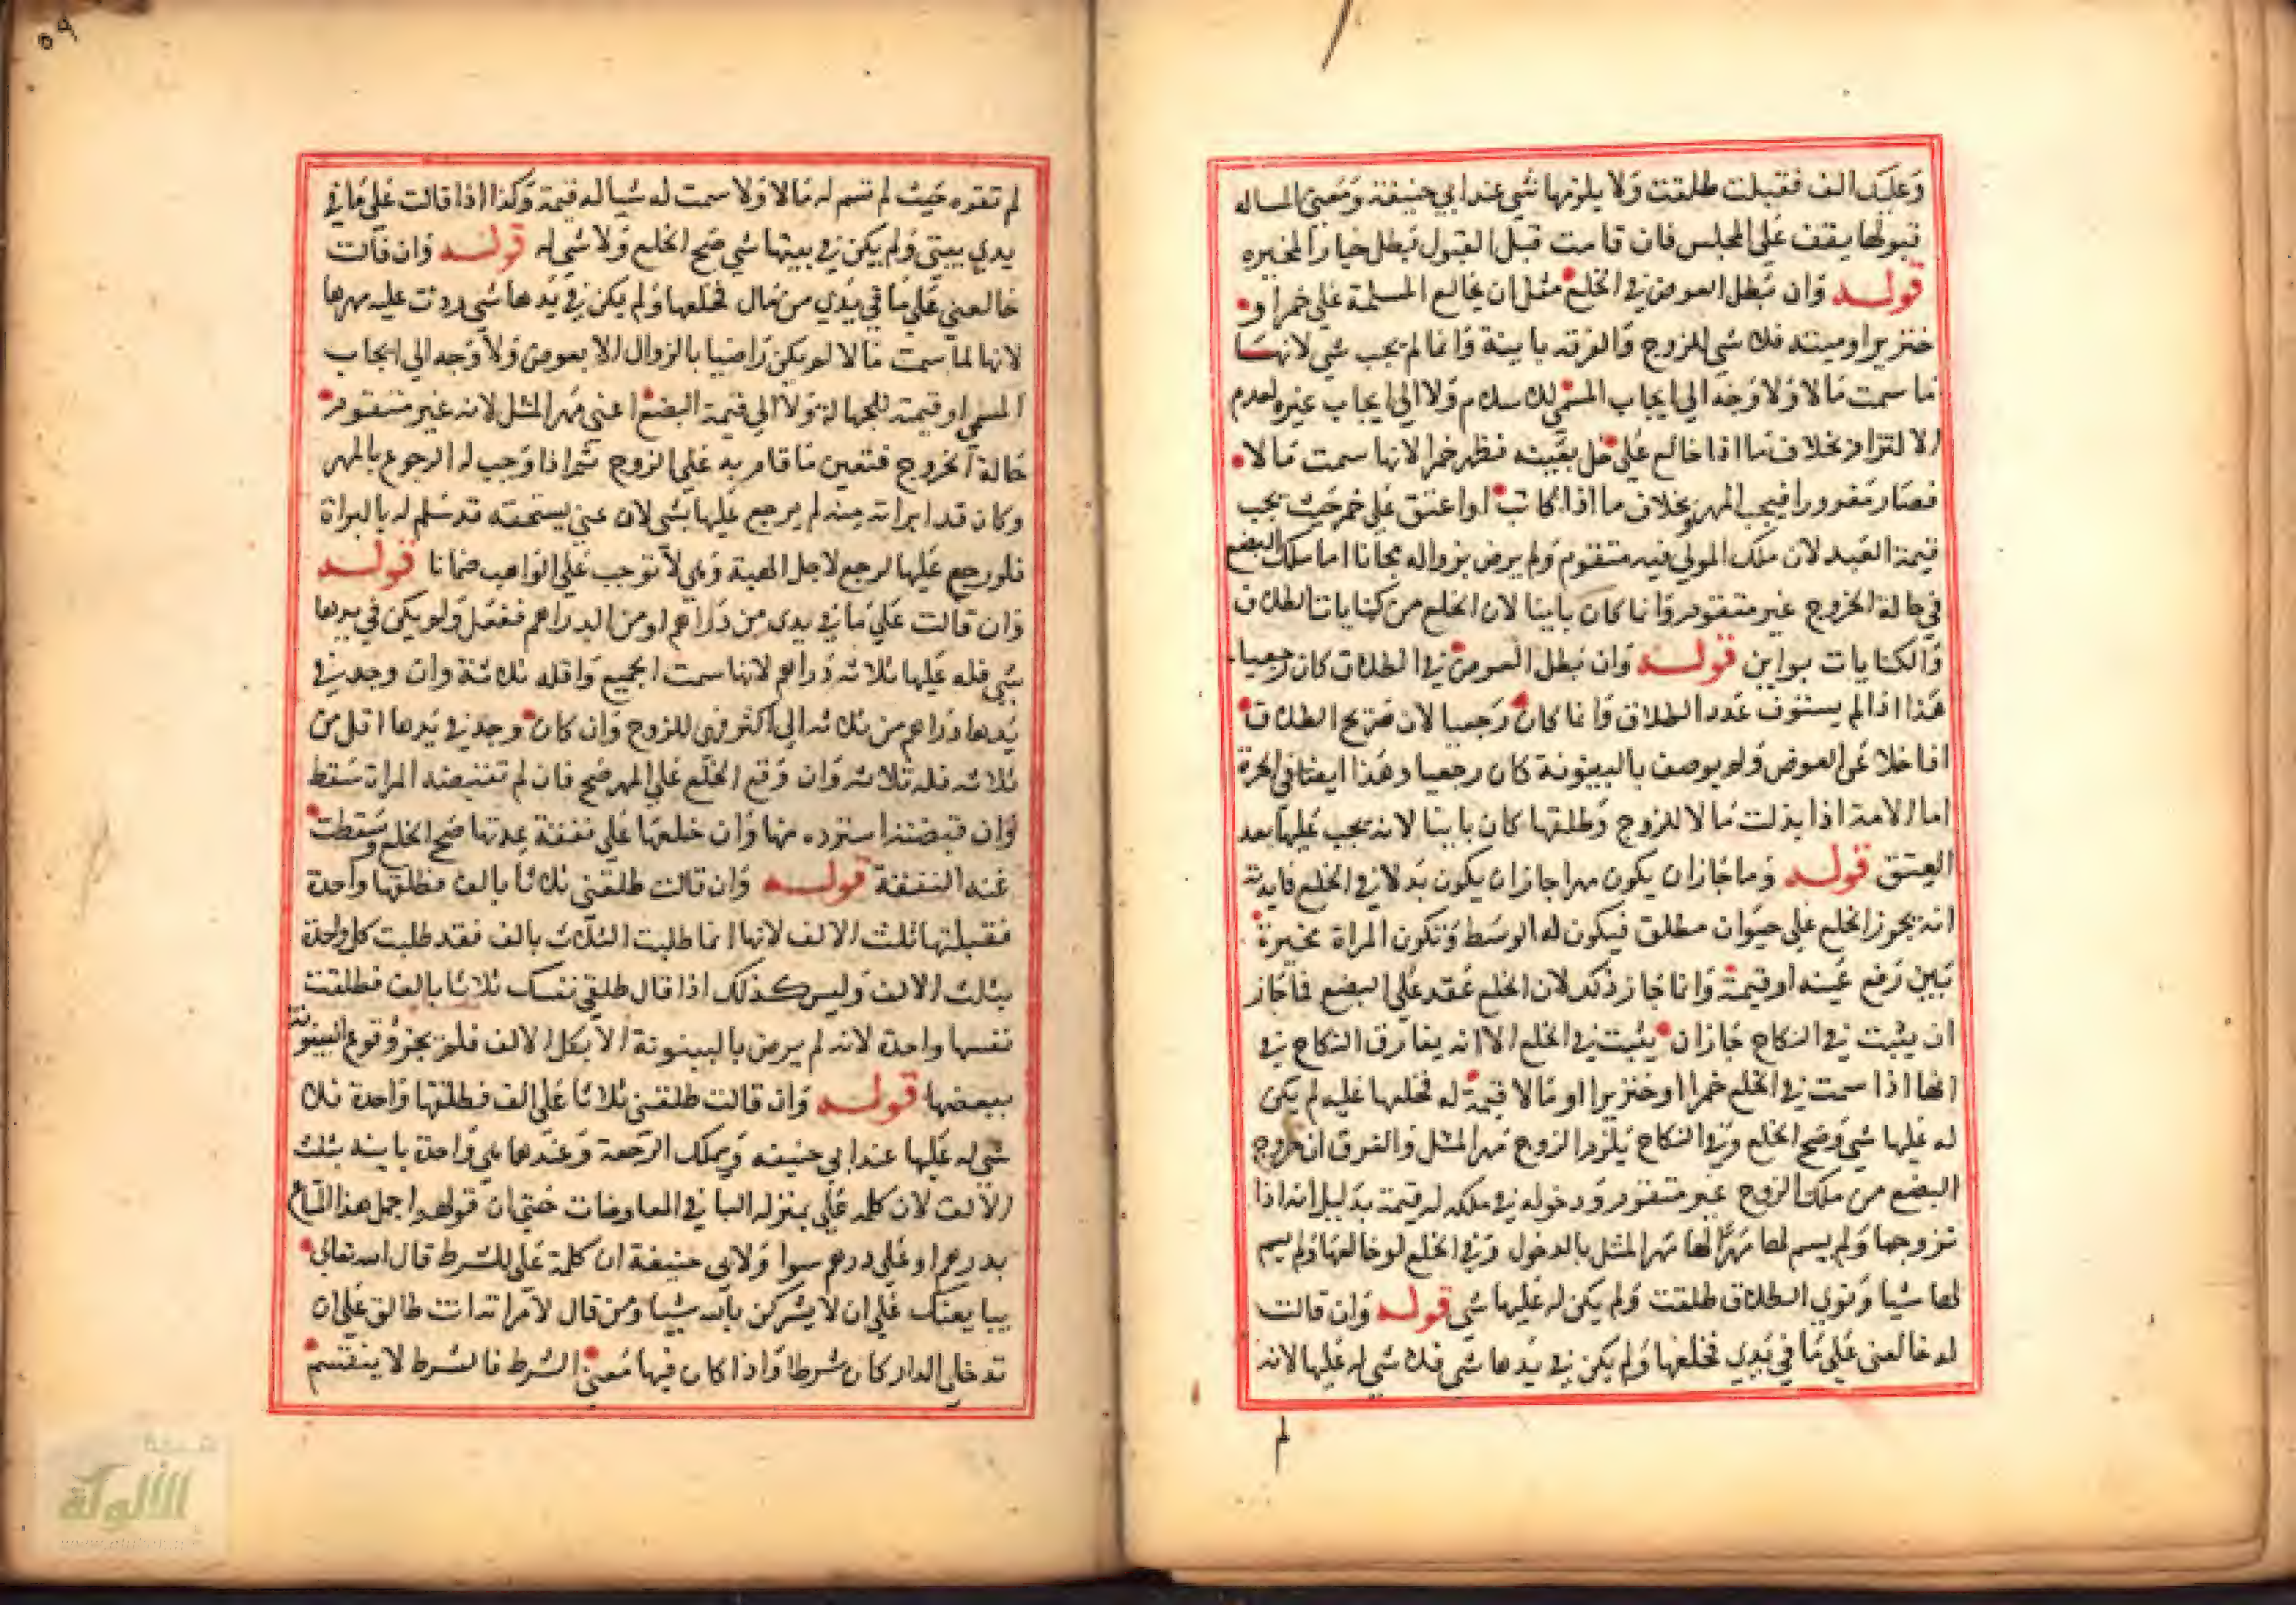 وعليك الف فقبلت طلقت ولا يلزمها شي عند ابي حنيفة ومعني المساله
قبولها يقف علي المجلس فان قامت قبل القبول بطل خيار المخيره
قوله وان بطل العوض في الخلع مثل ان يخالع المسلمة علي خمر او
خنزير او ميتة فلا شي للزوج والفرقه باينة وانما لم يجب شي لانها
ما سمت مالا ولا وجه الي ايجاب المسمي للاسلام ولا الي ايجاب غيره لعدم
الالتزام بخلاف ما اذا خالع علي خل بعينه فظهر خمرا لانها سمت مالا
فصار مغرورا فيجب المهر وبخلاف ما اذا كاتب او اعتق علي خمر حيث يجب
قيمة العبد لان ملك المولي فيه متقوم ولم يرض بزواله مجانا اما ملك البضع
في حالة الخروج غير متقوم وانما كان باينا لان الخلع من كنايات الطلاق
والكنايات بواين قوله وان بطل العوض في الطلاق كان رجعيا
هذا اذا لم يستوف عدد الطلاق وانما كان رجعيا لان صريح الطلاق
اذا خلا عن العوض ولم يوصف بالبينونة كان رجعيا وهذا ايضا في الحرة
اما الامة اذا بذلت مالا للزوج وطلقها كان باينا لانه يجب عليها بعد
العتق قوله وما جاز ان يكون مهرا جاز ان يكون بدلا في الخلع فايدته
انه يجوز الخلع علي حيوان مطلق فيكون له الوسط وتكون المراة مخيرة
بين رفع عينه او قيمته وانما جاز ذلك لان الخلع عقد علي البضع فما جاز
ان يثبت في النكاح جاز ان يثبت في الخلع الا انه يفارق النكاح في
انها اذا سمت في الخلع خمرا او خنزيرا او مالا قيمة له فخلعها عليه لم يكن
له عليها شي وصح الخلع وفي النكاح يلزم الزوج مهر المثل والفرق ان خروج
البضع من ملك الزوج غير متقوم ودخوله في ملكه له قيمة بدليل انه اذا
تزوجها ولم يسم لها مهرا لها مهر المثل بالدخول وفي الخلع لو خالعها ولم يسم
لها شيا ونوي الطلاق طلقت ولم يكن له عليها شي قوله وان قالت
له خالعني علي ما في يدي فخلعها ولم يكن في يدها شي فلا شي له عليها لانه
لم
٥٩
لم تغره حيث لم تسم له مالا ولا سمت له شيا له قيمة وكذا اذا قالت علي ما في
يدي بيتي ولم يكن في بيتها شي صح الخلع ولا شي له قوله وان قالت
خالعني علي ما في يدي من مال فخلعها ولم يكن في يدها شي ردت عليه مهرها
لانها لما سمت مالا لم يكن راضيا بالزوال الا بعوض ولا وجه الي ايجاب
المسمي او قيمته للجهالة ولا الي قيمة البضع اعني مهر المثل لانه غير متقوم
حالة الخروج فتعين ما قام به علي الزوج ثم اذا وجب له الرجوع بالمهر
وكان قد ابراته منه لم يرجع عليها بشي لان عين يستحقه قد سلم له بالبراة
فلو رجع عليها لرجع لاجل الهبة وهي لا توجب علي الواهب ضمانا قوله
وان قالت علي ما في يدي من دراهم او من الدراهم ففعل ولم يكن في يدها
شي فله عليها ثلاثه دراهم لانها سمت الجميع واقله ثلاثة وان وجد في
يدها دراهم من ثلاثه الي اكثر فهي للزوج وان كان وجد في يدها اقل من
ثلاثه فله ثلاثه وان وقع الخلع علي المهر صح فان لم تقبضه المراة سقط
وان قبضته استرده منها وان خلعها علي نفقة عدتها صح الخلع وسقطت
عنه النفقة قوله وان قالت طلقني ثلاثا بالف فطلقها واحدة
فقبلتها ثلث الالف لانها انما طلبت الثلاث بالف فقد طلبت كل واحدة
بثلث الالف وليس كذلك اذا قال طلقي نفسك ثلاثا بالف فطلقت
نفسها واحدة لانه لم يرض بالبينونة الا بكل الالف فلم يجز وقوع البينونة
ببعضها قوله وان قالت طلقني ثلاثا علي الف فطلقها واحدة فلا
شي له عليها عند ابي حنيفه ويملك الرجعة وعندهما هي واحدة باينه بثلث
الالف لان كلمه علي بمنزله البا في المعاوضات حتي ان قولهم احمل هذا المتاع
بدرهم او علي درهم سوا ولابي حنيفة ان كلمة علي للشرط قال الله تعالي
يبايعنك علي ان لا يشركن بالله شيا ومن قال لامراته انت طالق علي ان
تدخلي الدار كان شرطا واذا كان فيها معني الشرط فالشرط لا ينقسم
شبكة
الألوكة